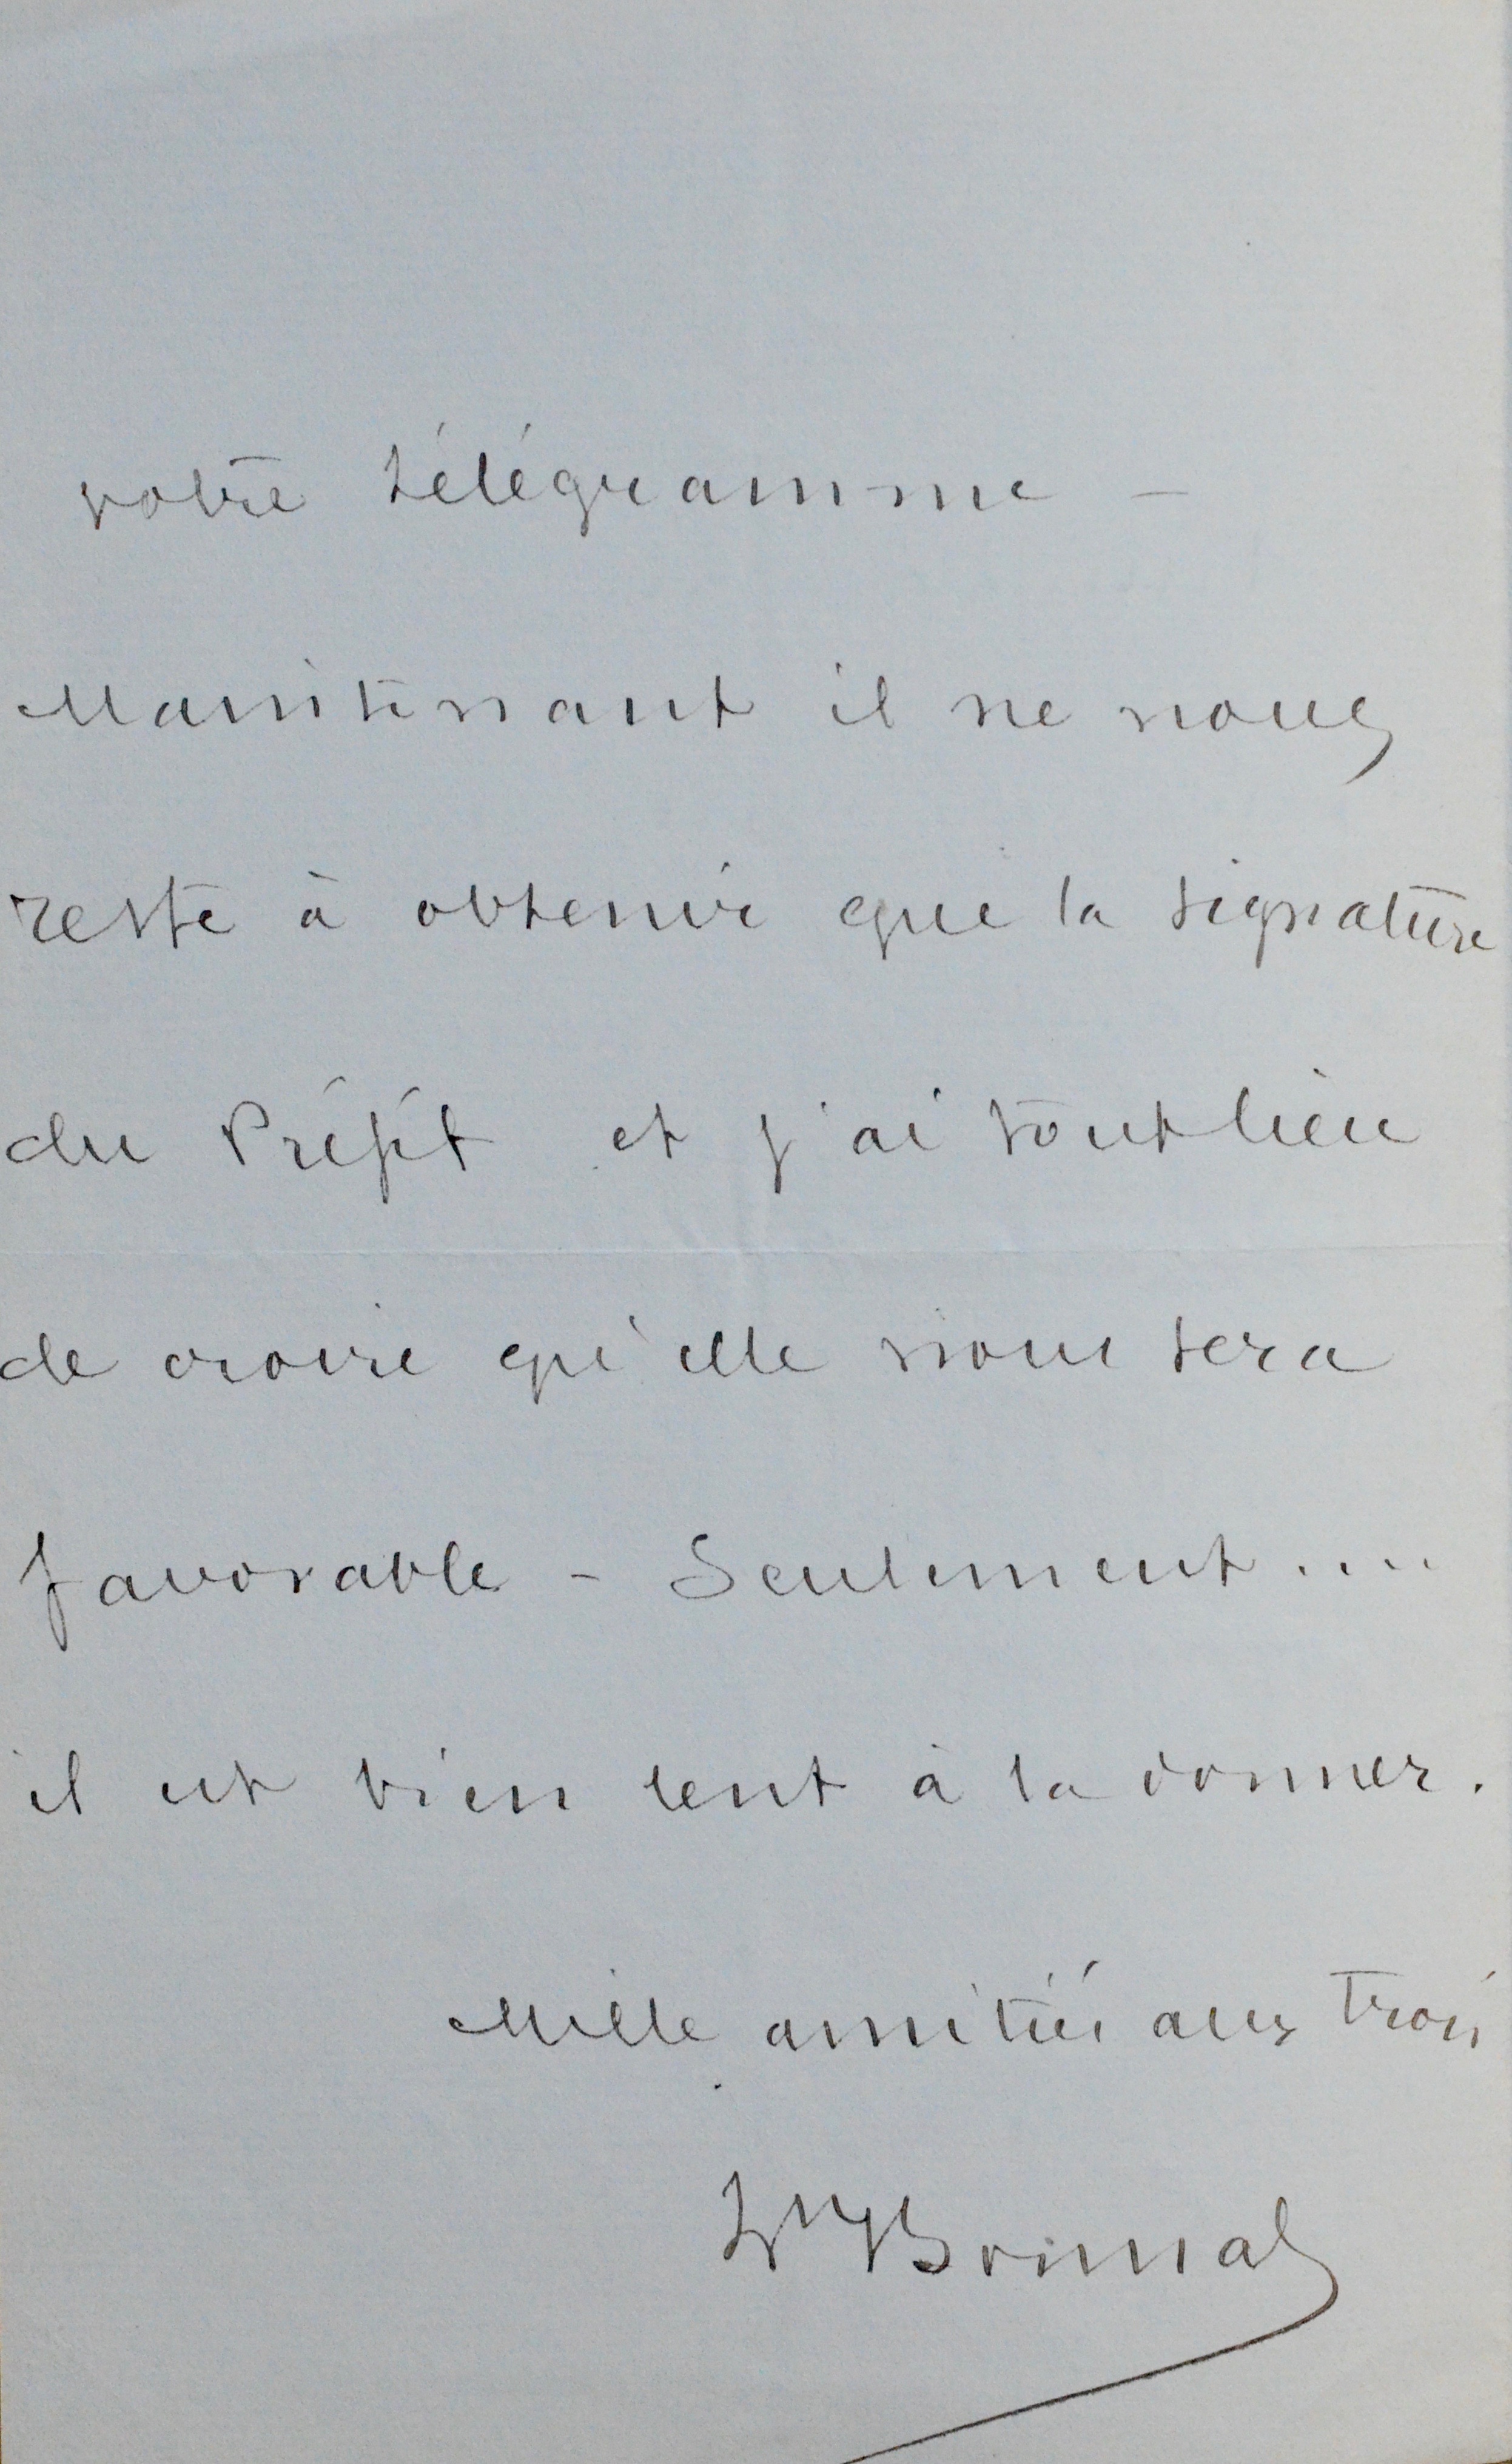 votre télégramme —
Maintenant il ne nous
reste à obtenir que la signature
du Préfét et j'ai tout lieu
de croire qu'elle nous sera
favorable - Seulement....
il est bien lent à la donner.
Mille amitiés aux trois
Bonnal